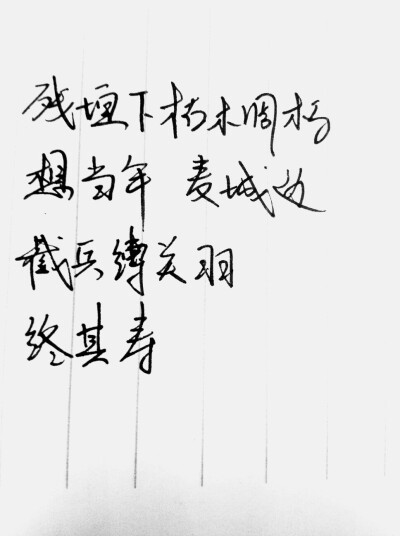 残垣下 朽木凋朽
想当年 麦城边
截兵缚关羽
终其寿